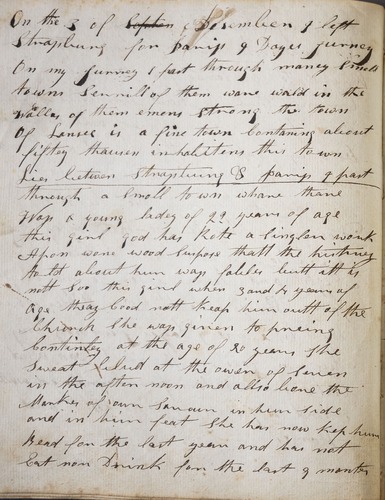 On the 3 of Desember I left
Strasburg for paris 4 Dayes jurney
On my jurney I past through maney Smole
towns Severill of them ware wald in the
walles of them emens Strong the town
Of Lansee is a fine town Contaning about
fiftey thausen inhabitens this town
Lies betwen Strasburg & paris I past
through a Smoll town whare thare
Was a young ladey of 22 years of age
this girl god has Rote a Singler work
Upon wone wood Surpose thatt the histrey
to be about hur was falles butt itt is
nott Soo this girl when 3 and 4 years of
age they Cood nott Keap hur outt of the
Church She was given to preing
Continley at the age of 20 years She
Sweat Blud at the ower of Seven
in the after noon and allso bore the
Markes of our Saviour in hur Side
and in hur feat She has now kep hur
Bead for the last year and has not
Eat nor Drink for the last 9 months